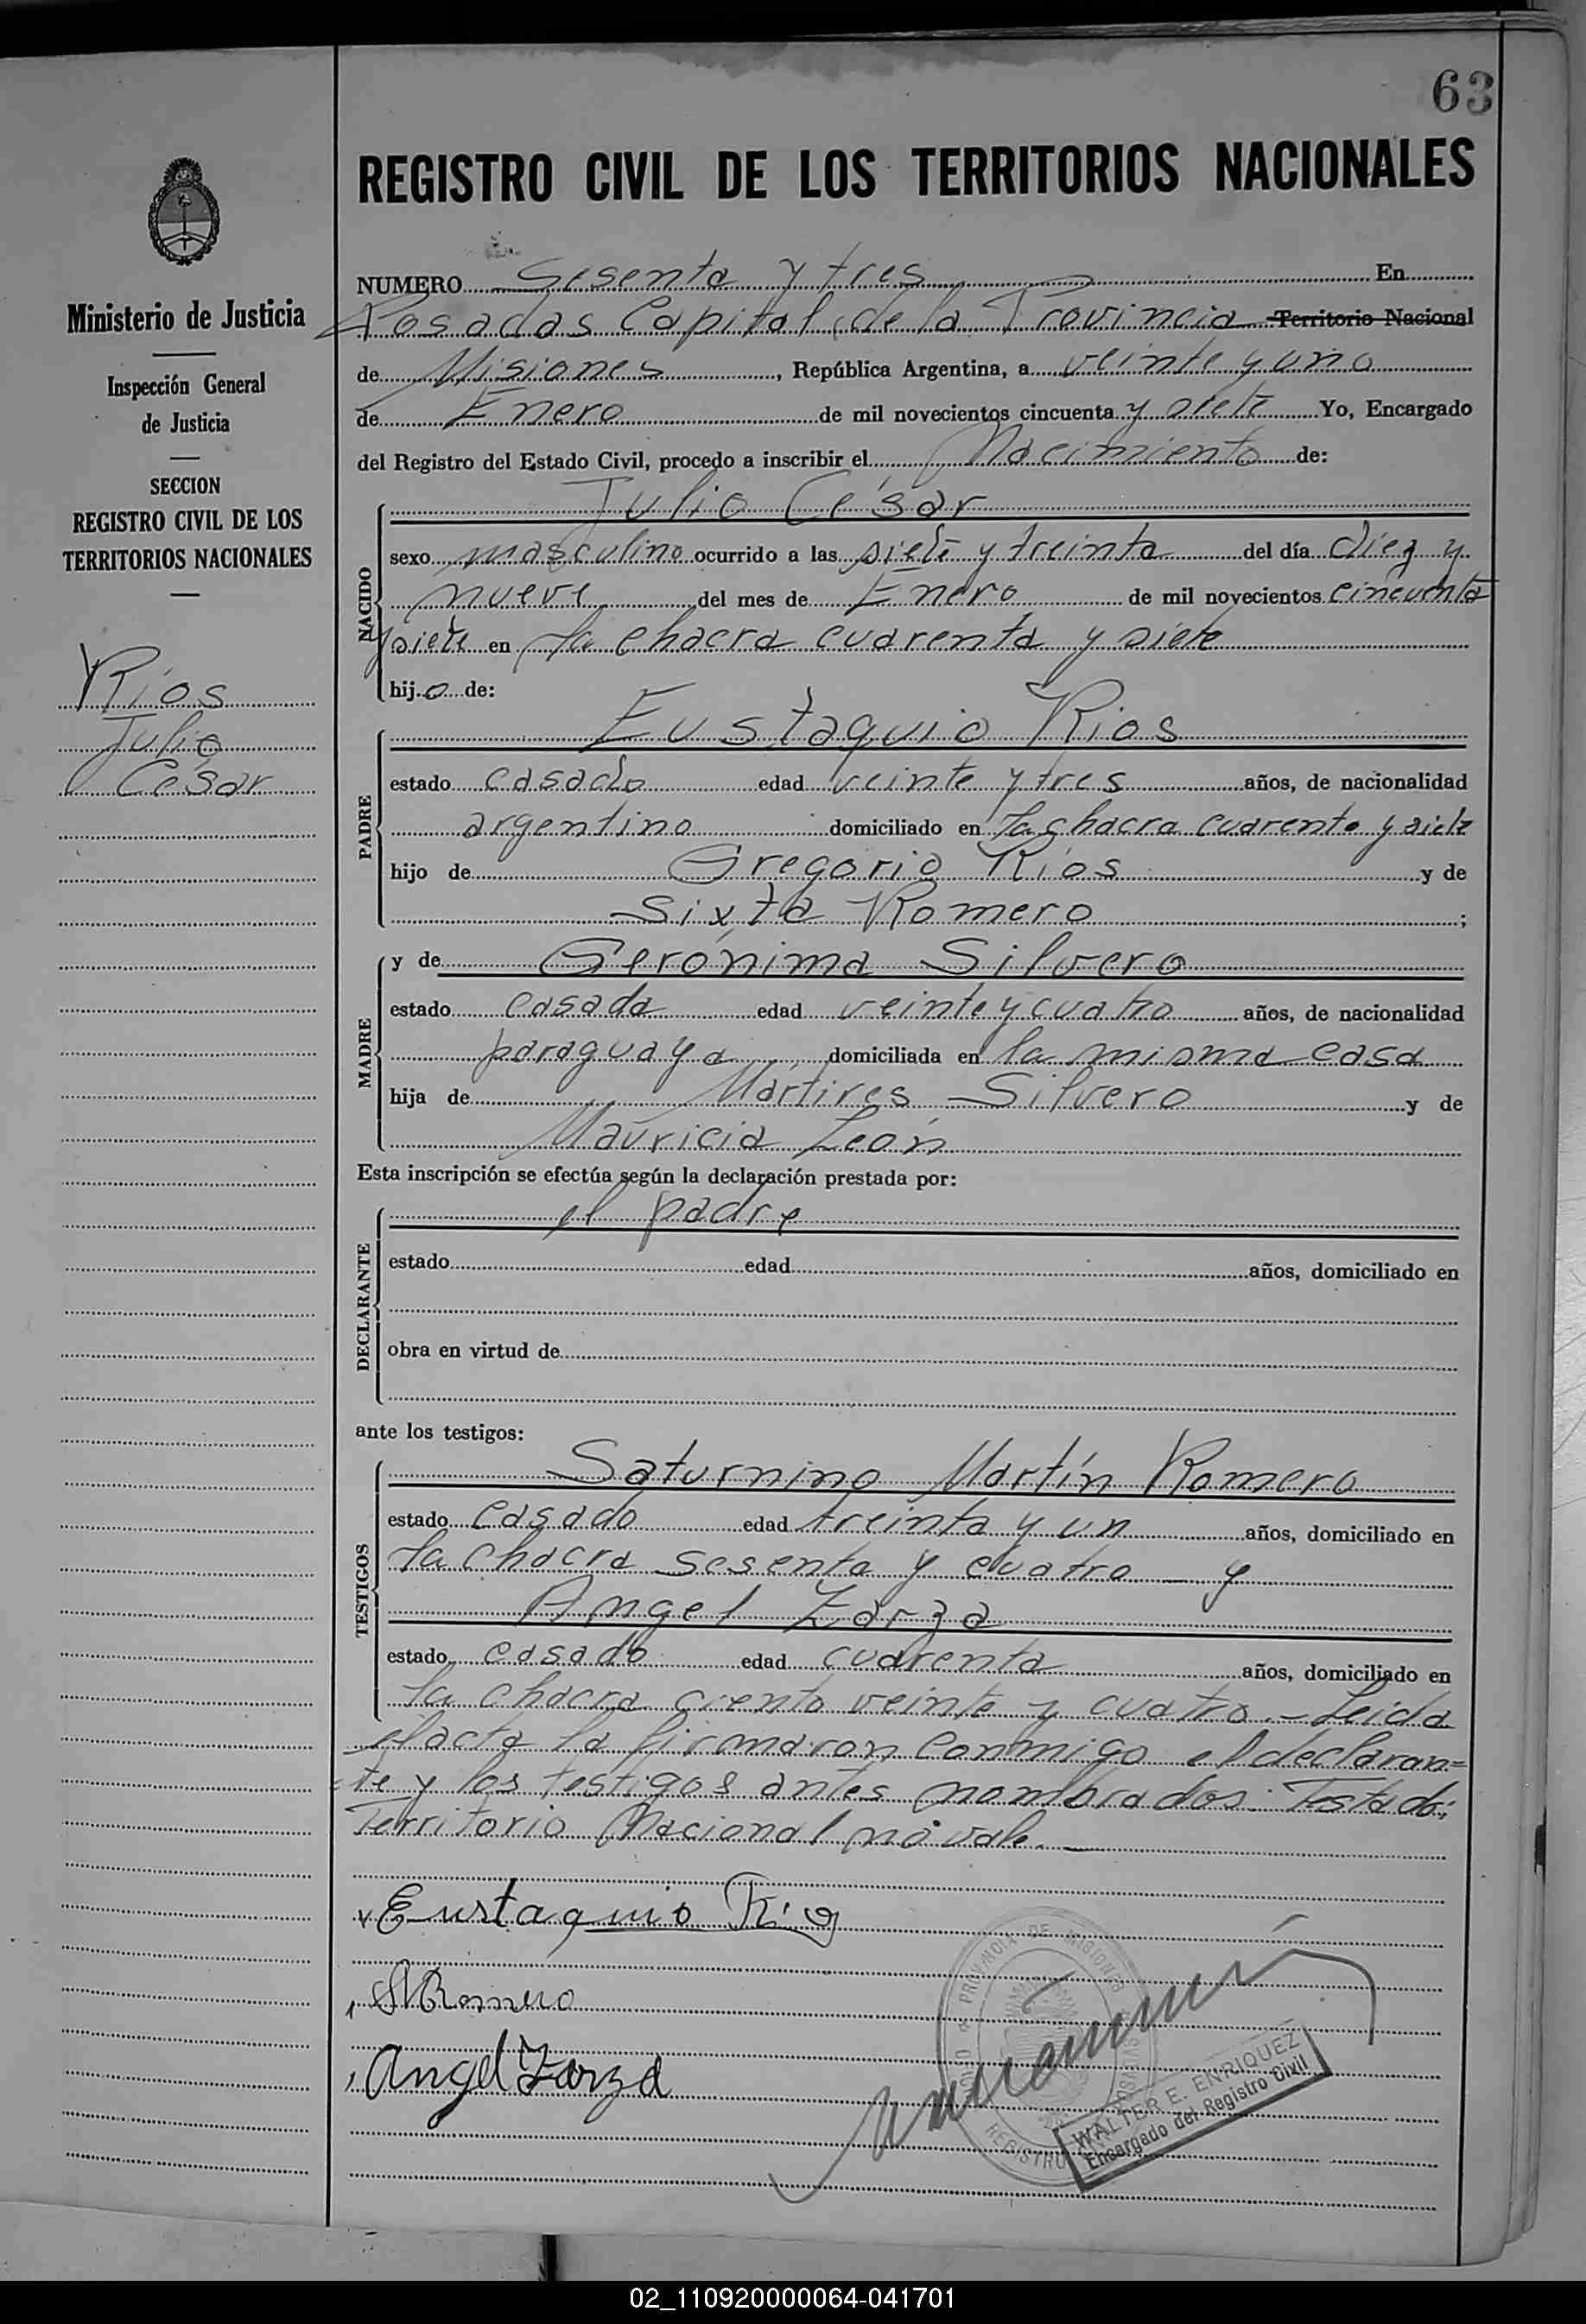 63
REGISTRO CIVIL DE LOS TERRITORIOS NACIONALES
Ministerio de Justicia
Inspección General
de Justicia
SECCION
REGISTRO CIVIL DE LOS
TERRITORIOS NACIONALES
Ríos
Julio
César
NUMERO Sesenta y tres En
Posadas Capital de la Provincia Territorio Nacional
de Misiones, República Argentina, a veinte y uno
de Enero de mil novecientos cincuenta y siete Yo, Encargado
del Registro del Estado Civil, procedo a inscribir el Nacimiento de:
NACIDO
Julio César
sexo masculino ocurrido a las siete y treinta del día diez y
nueve del mes de Enero de mil novecientos cincuenta
y siete en la chacra cuarenta y siete
hijo de:
PADRE
Eustaquio Ríos
estado casado edad veinte y tres años, de nacionalidad
argentino domiciliado en la chacra cuarenta y siete
hijo de Gregorio Ríos y de
Sixta Romero;
MADRE
y de Gerónima Silvero
estado casada edad veinte y cuatro años, de nacionalidad
paraguaya domiciliada en la misma casa
hija de Mártires Silvero y de
Mauricia León
Esta inscripción se efectúa según la declaración prestada por:
DECLARANTE
el padre
estado edad años, domiciliado en
obra en virtud de
ante los testigos:
TESTIGOS
Saturnino Martín Romero
estado casado edad treinta y un años, domiciliado en
la chacra sesenta y cuatro — y
Angel Zarza
estado casado edad cuarenta años, domiciliado en
la chacra ciento veinte y cuatro.- Leída
el acta la firmaron conmigo el declaran=
te y los testigos antes nombrados. Testado:
Territorio Nacional no vale.—
Eustaquio Ríos
SMRomero
Angel Zarza
PROVINCIA DE MISIONES
POSADAS
REGISTRO
WALTER E. ENRIQUEZ
Encargado del Registro Civil
02_110920000064-041701